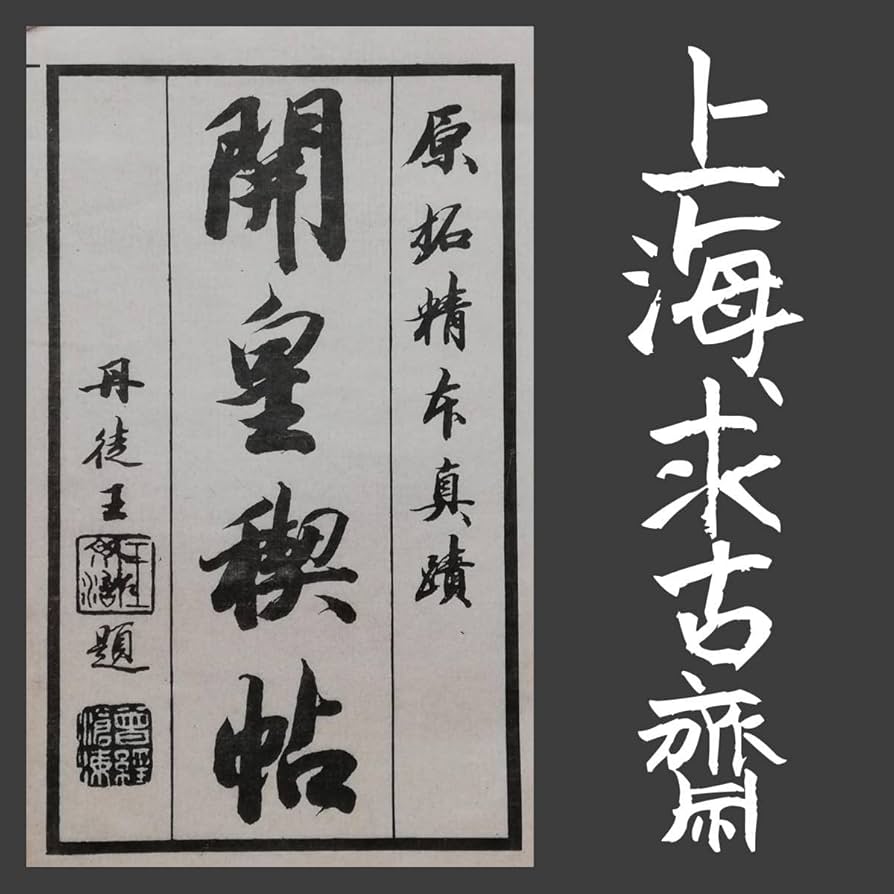 上海求古齋
原拓精本真蹟
開皇稧帖
丹徒王
題